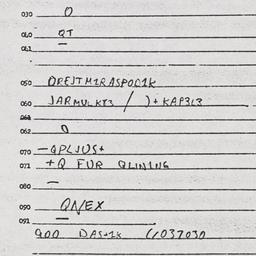 030 O
040 QT
041 —
050 OREJTM1RASPOD1K
060 JARMULKT3 / )+KAP3L3
061
062 O
070 —QPLJUS+
071 +Q FUR QLINING
080 —
090 QN/EX
091 —
900 DAS+1K (/037030